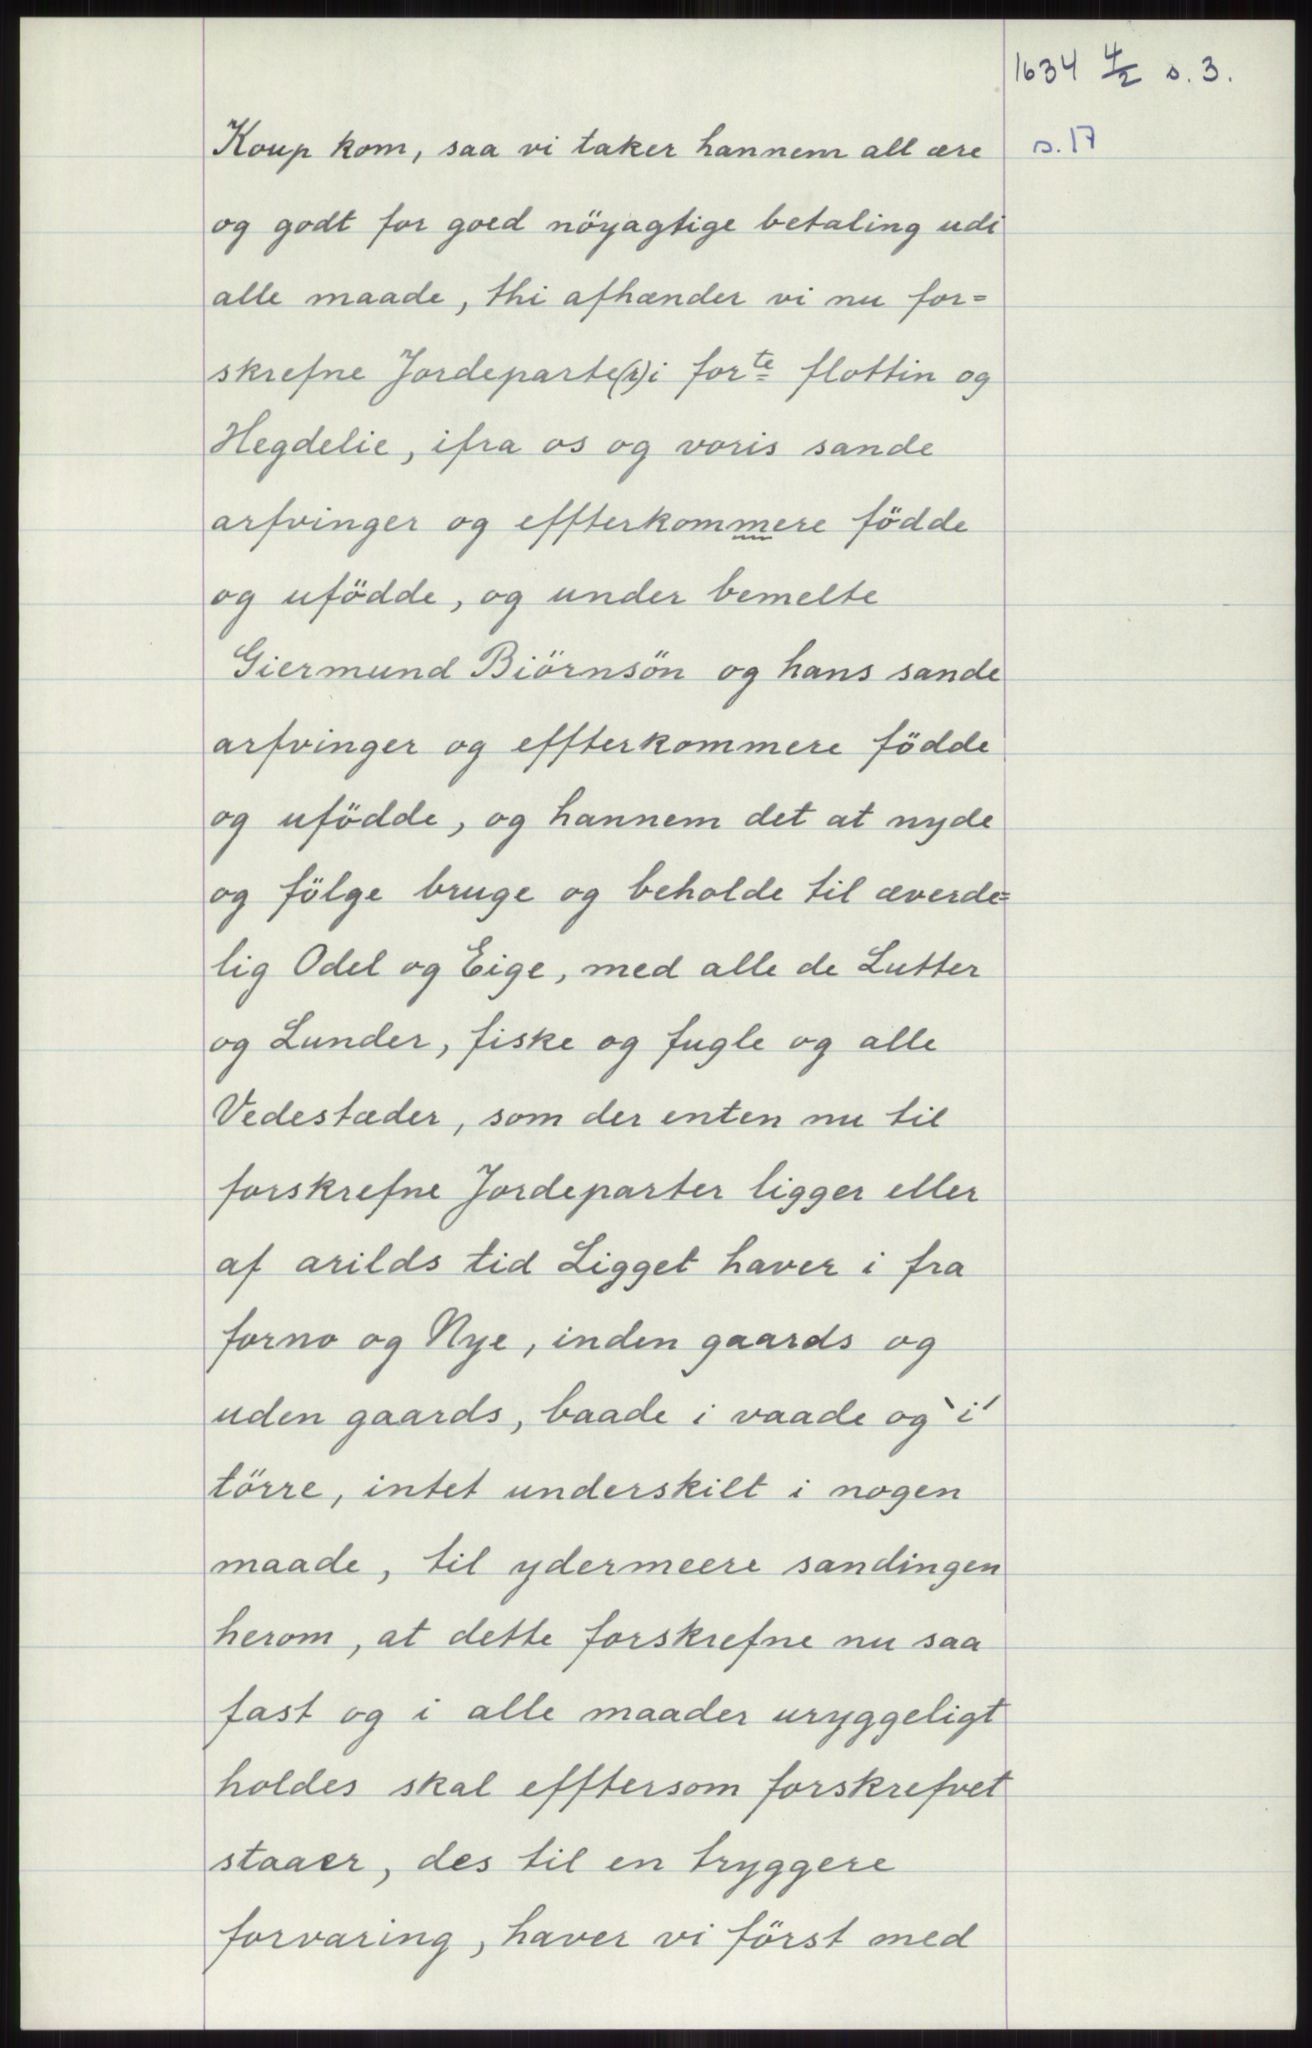 1634 4/2 s. 3.
s. 17
Koup kom, saa vi taker hannem all ære
og godt for goed nöyagtige betaling udi
alle maade, thi afhænder vi nu for=
skrefne Jordeparte(r) i forte flottin og
Hegdelie, ifra os og voris sande
arfvinger og effterkommere födde
og ufödde, og under bemelte
Giermund Biörnsön og hans sande
arfvinger og effterkommere födde
og ufödde, og hannem det at nyde
og fölge bruge og beholde til æverde=
lig Odel og Eige, med alle de Lutter
og Lunder, fiske og fugle og alle
Vedestæder, som der enten nu til
forskrefne Jordeparter ligger eller
af arilds tid Ligget haver i fra
forno og Nye, inden gaards og
uden gaards, baade i vaade og `i´
törre, intet underskilt i nogen
maade, til ydermeere sandingen
herom, at dette forskrefne nu saa
fast og i alle maader uryggeligt
holdes skal efftersom forskrefvet
staaer, des til en tryggere
forvaring, haver vi först med